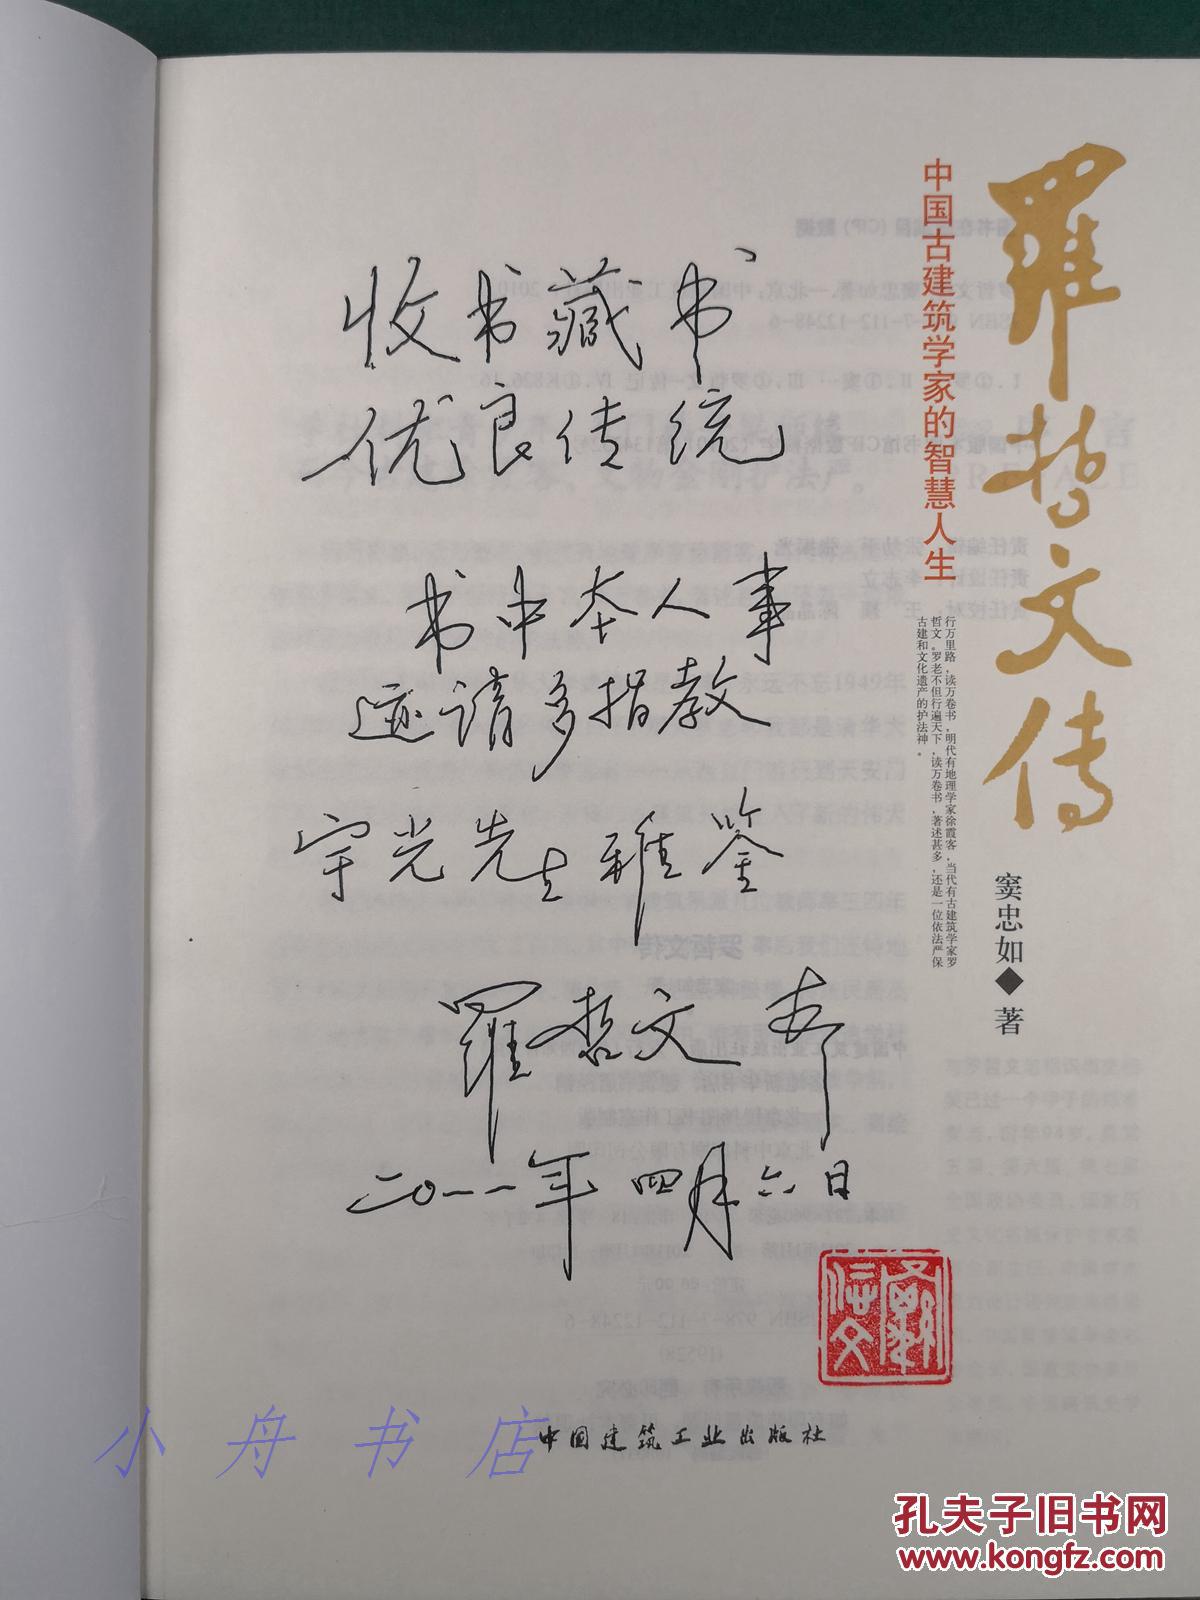 羅哲文传
中国古建筑学家的智慧人生
行万里路，读万卷书，明代有地理学家徐霞客，当代有古建筑学家罗
哲文。罗老不但行遍天下，读万卷书，著述甚多，还是一位依法严保
古建和文化遗产的护法神。
窦忠如◆著
收书藏书
优良传统
书中本人事
迹请多指教
宇光先生雅鉴
羅哲文
二〇一一年四月六日
中国建筑工业出版社
小舟书店
孔夫子旧书网
www.kongfz.com